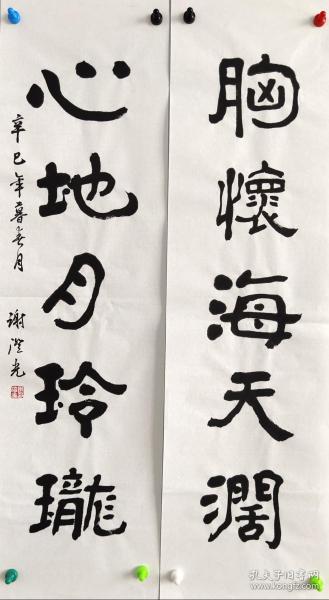 胸懷海天濶
心地月玲瓏
辛巳年暮春月
謝澄光
孔夫子旧书网
www.kongfz.com